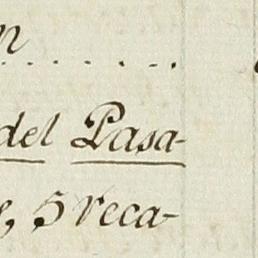 n
........
del Pasa-
e, 5 reca-